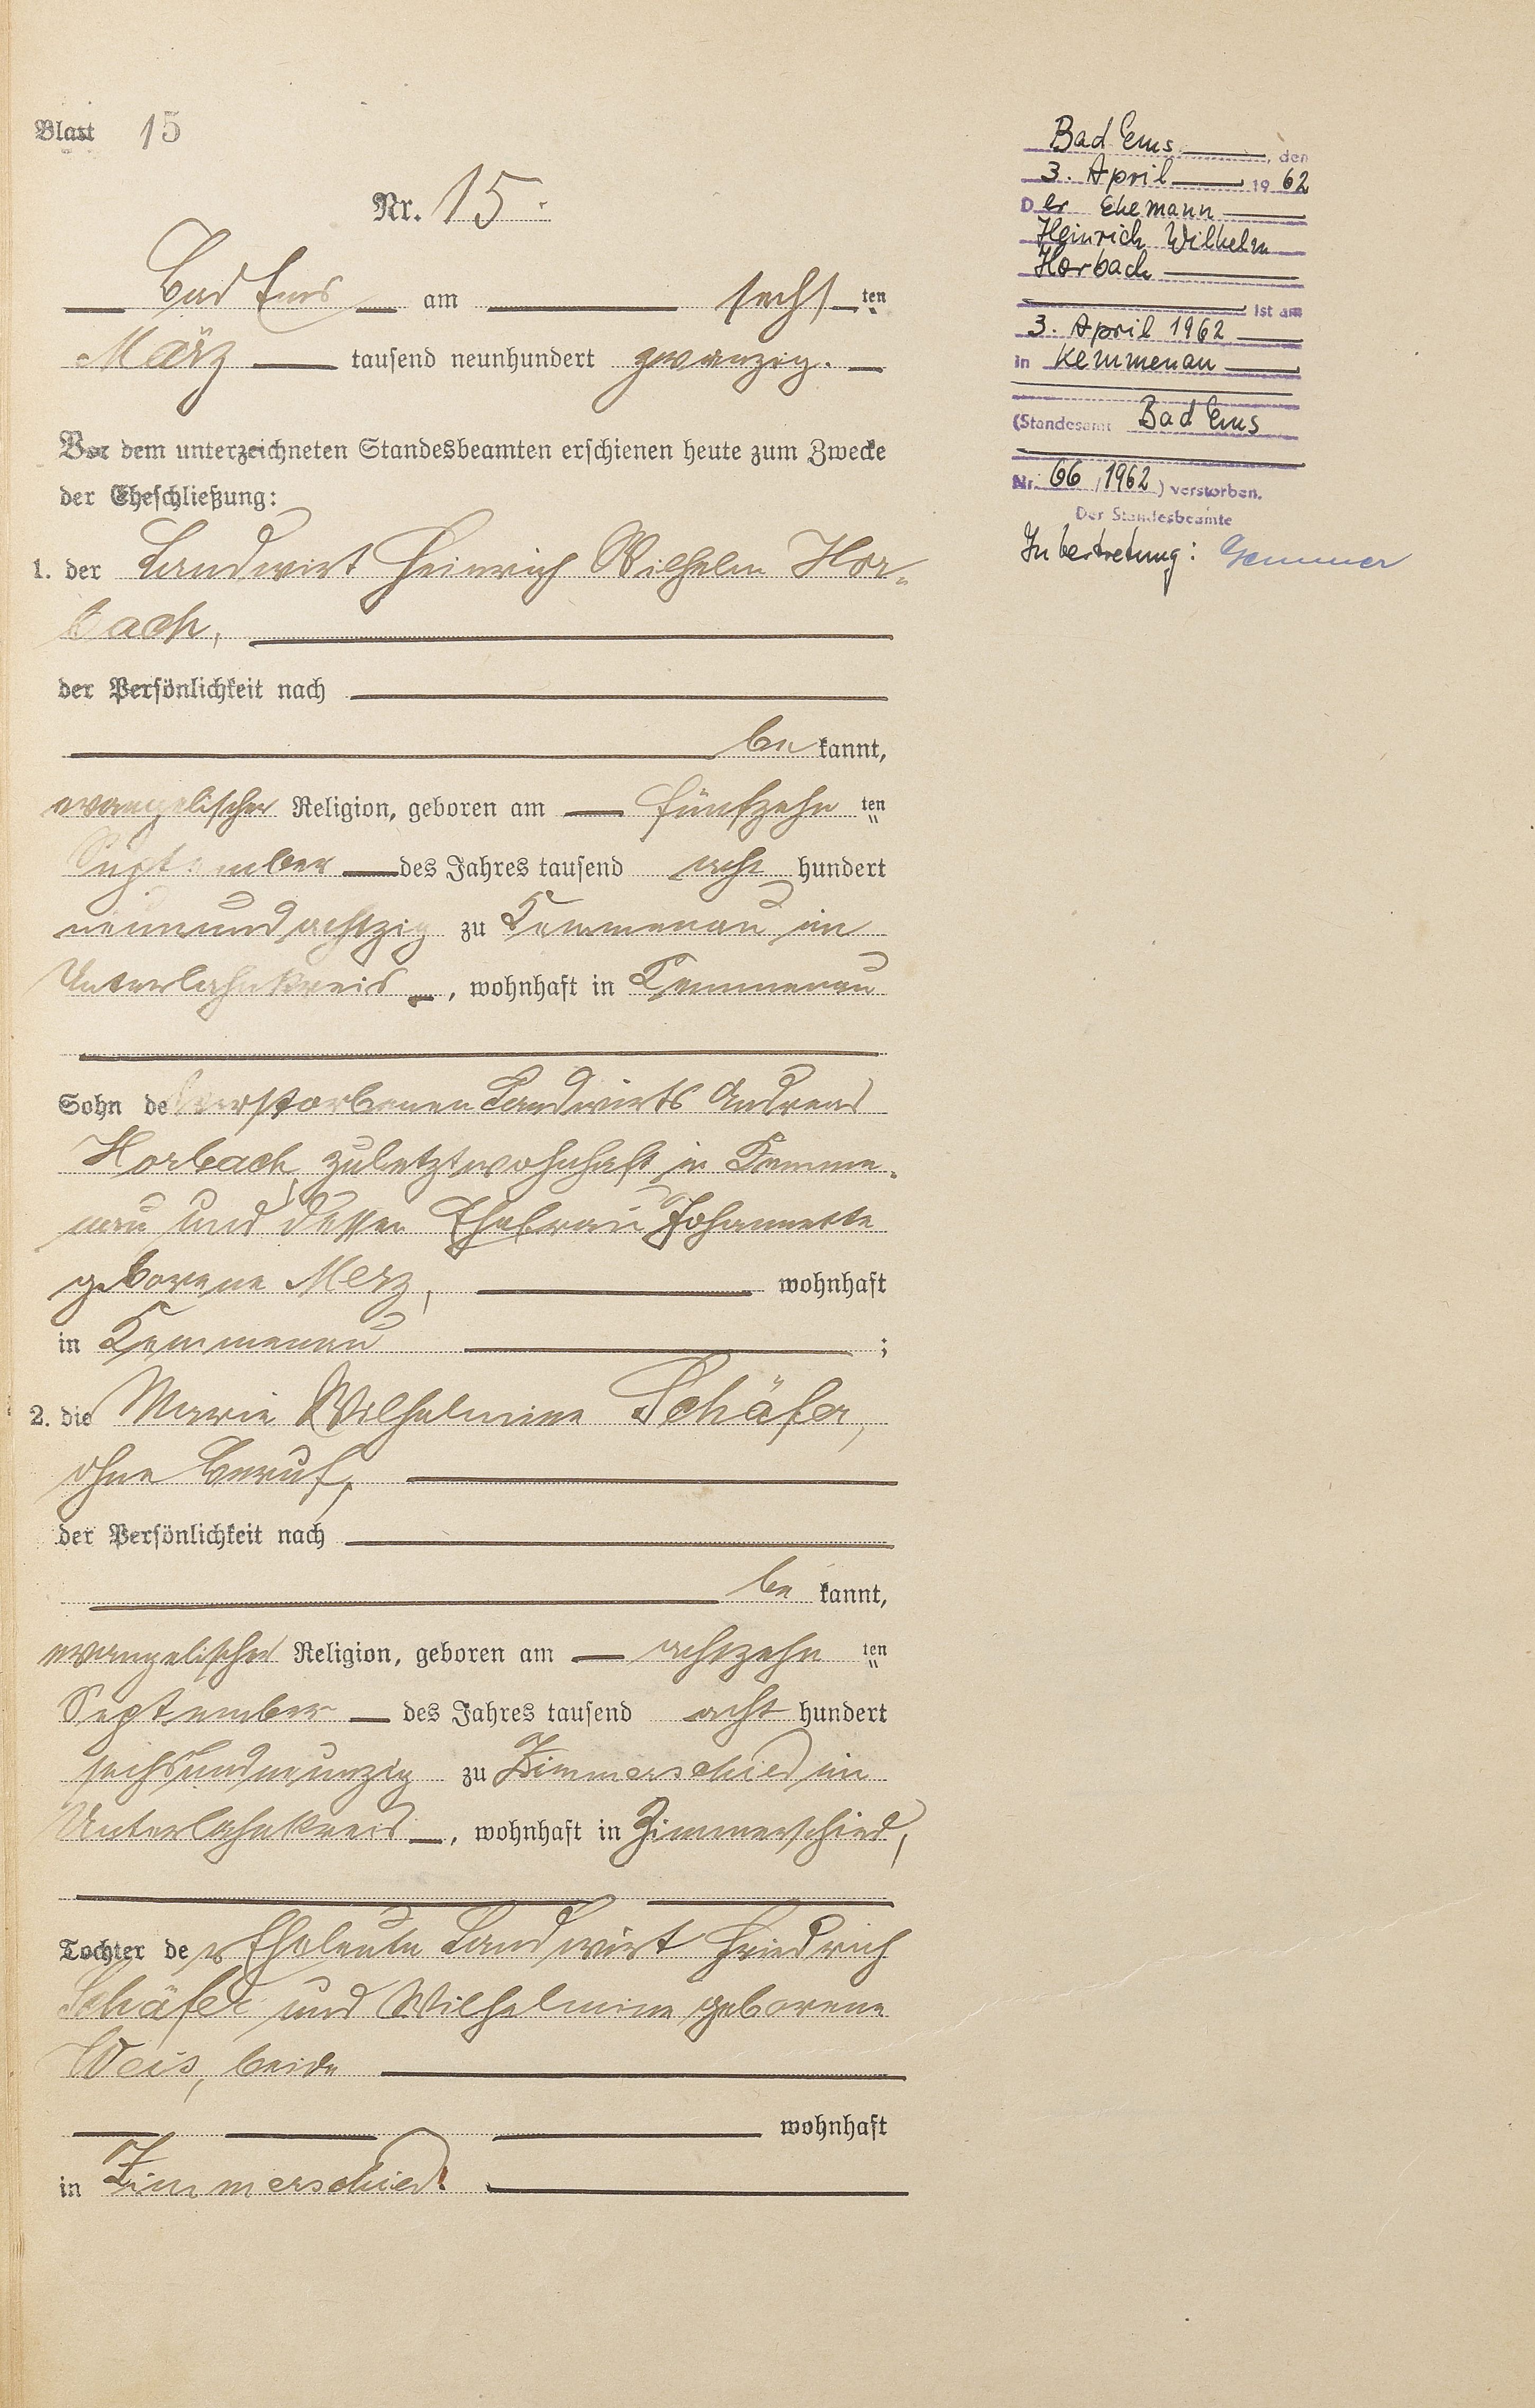 Blatt 15
Nr. 15.
Bad Ems am sechsten
März tausend neunhundert zwanzig.
Vor dem unterzeichneten Standesbeamten erschienen heute zum Zwecke
der Eheschließung:
1. der Landwirt Heinrich Wilhelm Hor-
bach,
der Persönlichkeit nach
bekannt,
evangelischer Religion, geboren am fünfzehnten
September des Jahres tausend acht hundert
neunundachtzig zu Kemmenau im
Unterlahnkreis, wohnhaft in Kemmenau
Sohn des verstorbenen Landwirts Andreas
Horbach, zuletzt wohnhaft in Kemme-
nau und dessen Ehefrau Johannette
geborene Merz, wohnhaft
in Kemmenau ;
2. die Marie Wilhelmine Schäfer,
ohne Beruf,
der Persönlichkeit nach
bekannt,
evangelischer Religion, geboren am achtzehnten
September des Jahres tausend acht hundert
sechsundneunzig zu Zimmerschied im
Unterlahnkreis, wohnhaft in Zimmerschied,
Tochter der Eheleute Landwirt Friedrich
Schäfer und Wilhelmine geborene
Weis, beide
wohnhaft
in Zimmerschied.
Bad Ems, den
3. April 1962
Der Ehemann
Heinrich Wilhelm
Horbach
ist am
3. April 1962
in Kemmenau
(Standesamt Bad Ems
Nr. 66/1962) verstorben.
Der Standesbeamte
In Vertretung: Gemmer